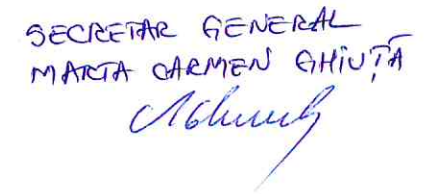 SECRETAR GENERAL
MARIA CARMEN GHIUȚĂ